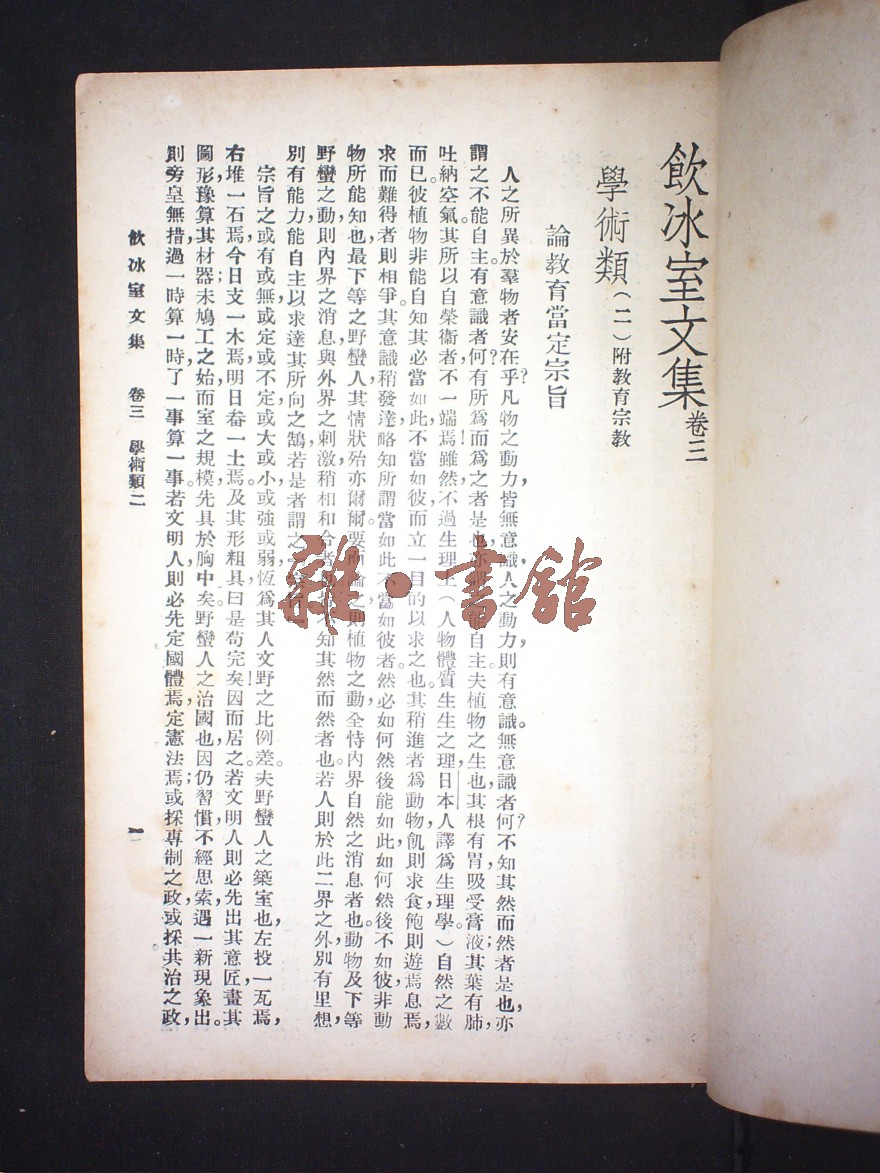 飲冰室文集卷三
學術類(二)附教育宗教
論教育當定宗旨
人之所異於羣物者安在乎?凡物之動力,皆無意識,人之動力,則有意識。無意識者何?不知其然而然者是也,亦
謂之不能自主。有意識者何?有所爲而爲之者是也,亦 能自主。夫植物之生也,其根有胃,吸受膏液;其葉有肺,
吐納空氣。其所以自榮衞者,不一端焉!雖然,不過生理上(人物體質生生之理,日本人譯爲生理學。)自然之數
而已。彼植物非能自知其必當如此,不當如彼,而立一目的以求之也。其稍進者爲動物,飢則求食,飽則遊焉息焉,
求而難得者則相爭。其意識稍發達,略知所謂當如此不當如彼者。然必如何然後能如此,如何然後不如彼,非動
物所能知也。最下等之野蠻人,其情狀殆亦爾爾。要而論之,則植物之動,全恃內界自然之消息者也。動物及下等
野蠻之動,則內界之消息,與外界之刺激,稍相和合者 不知其然而然者也。若人則於此二界之外,別有里想,
別有能力,能自主以求達其所向之鵠,若是者謂之
宗旨之或有或無,或定或不定,或大或小,或強或弱,恆爲其人文野之比例差。夫野蠻人之築室也,左投一瓦焉,
右堆一石焉,今日支一木焉,明日畚一土焉。及其形粗具,曰是苟完矣!因而居之。若文明人則必先出其意匠,畫其
圖形,豫算其材器;未鳩工之始,而室之規模,先具於胸中矣。野蠻人之治國也,因仍習慣,不經思索,遇一新現象出。
則旁皇無措,過一時算一時,了一事算一事。若文明人則必先定國體焉,定憲法焉;或採專制之政,或採共治之政,
飲冰室文集 卷三 學術類二
一
雜·書館